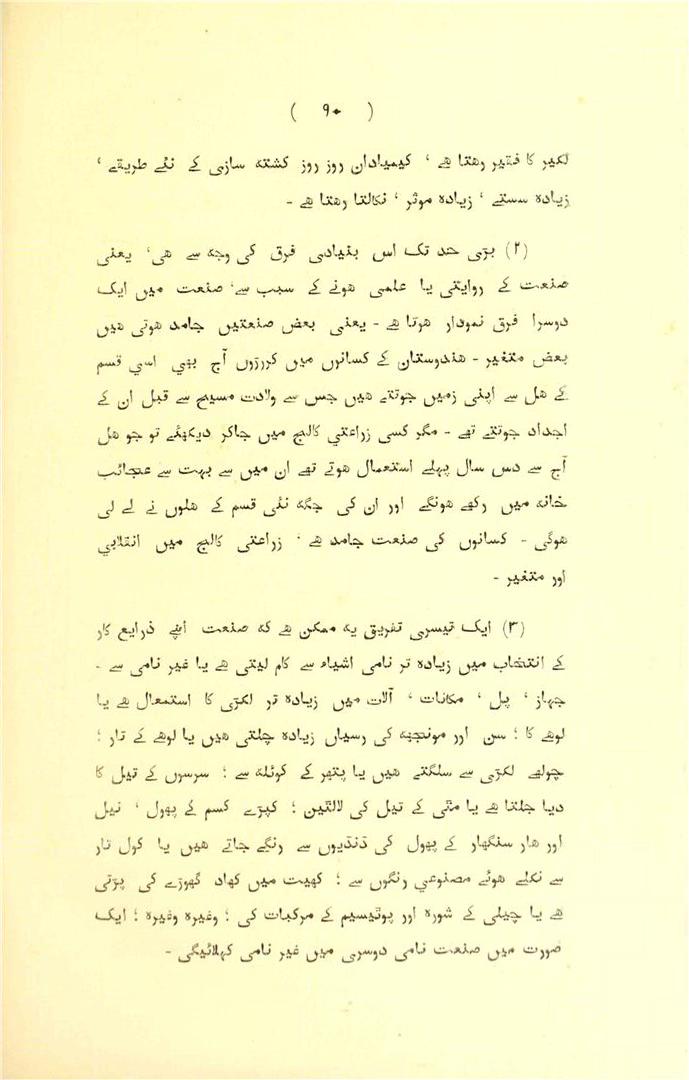 ( ۹۰ )
لکیر کا فقیر رهتا هے ، کیمیادان روز روز کشته سازی کے نئے طریقے ،
زیاده سستے ، زیاده موثر ، نکالتا رهتا هے -
(۲) بڑی حد تک اس بنیادی فرق کی وجه سے هی، یعنی
صنعت کے روایتی یا علمی هونے کے سبب سے، صنعت میں ایک
دوسرا فرق نمودار هوتا هے - یعنی بعض صنعتیں جامد هوتی هیں
بعض متغیر - هندوستان کے کسانوں میں کروڑوں آج بهی اسی قسم
کے هل سے اپنی زمیں جوتتے هیں جس سے ولادت مسیح سے قبل ان کے
اجداد جوتتے تهے - مگر کسی زراعتی کالج میں جاکر دیکهئے تو جو هل
آج سے دس سال پہلے استعمال هوتے تهے ان میں سے بہت سے عجائب
خانه میں رکهے هونگے اور ان کی جگه نئی قسم کے هلوں نے لے لی
هوگی - کسانوں کی صنعت جامد هے ، زراعتی کالج میں انقلابی
اور متغیر -
(۳) ایک تیسری تفریق یه ممکن هے که صنعت اپنے ذرایع کار
کے انتخاب میں زیاده تر نامی اشیاء سے کام لیتی هے یا غیر نامی سے -
جہاز ، پل ، مکانات ، آلات میں زیاده تر لکڑی کا استمعال هے یا
لوهے کا ؛ سن اور مونجهه کی رسیاں زیاده چلتی هیں یا لوهے کے تار ؛
چولهے لکڑی سے سلگتے هیں یا پتهر کے کوئله سے ؛ سرسوں کے تیل کا
دیا جلتا هے یا مٹی کے تیل کی لالٹین ؛ کپڑے کسم کے پهول ، نیل
اور هار سنگهار کے پهول کی ڈنڈیوں سے رنگے جاتے هیں یا کول تار
سے نکلے هوئے مصنوعی رنگوں سے ؛ کهیت میں کهاد گهوڑے کی پڑتی
هے یا چیلی کے شوره اور پوٹیسیم کے مرکبات کی ؛ وغیره وغیره ؛ ایک
صورت میں صنعت نامی دوسری میں غیر نامی کہلائیگی -